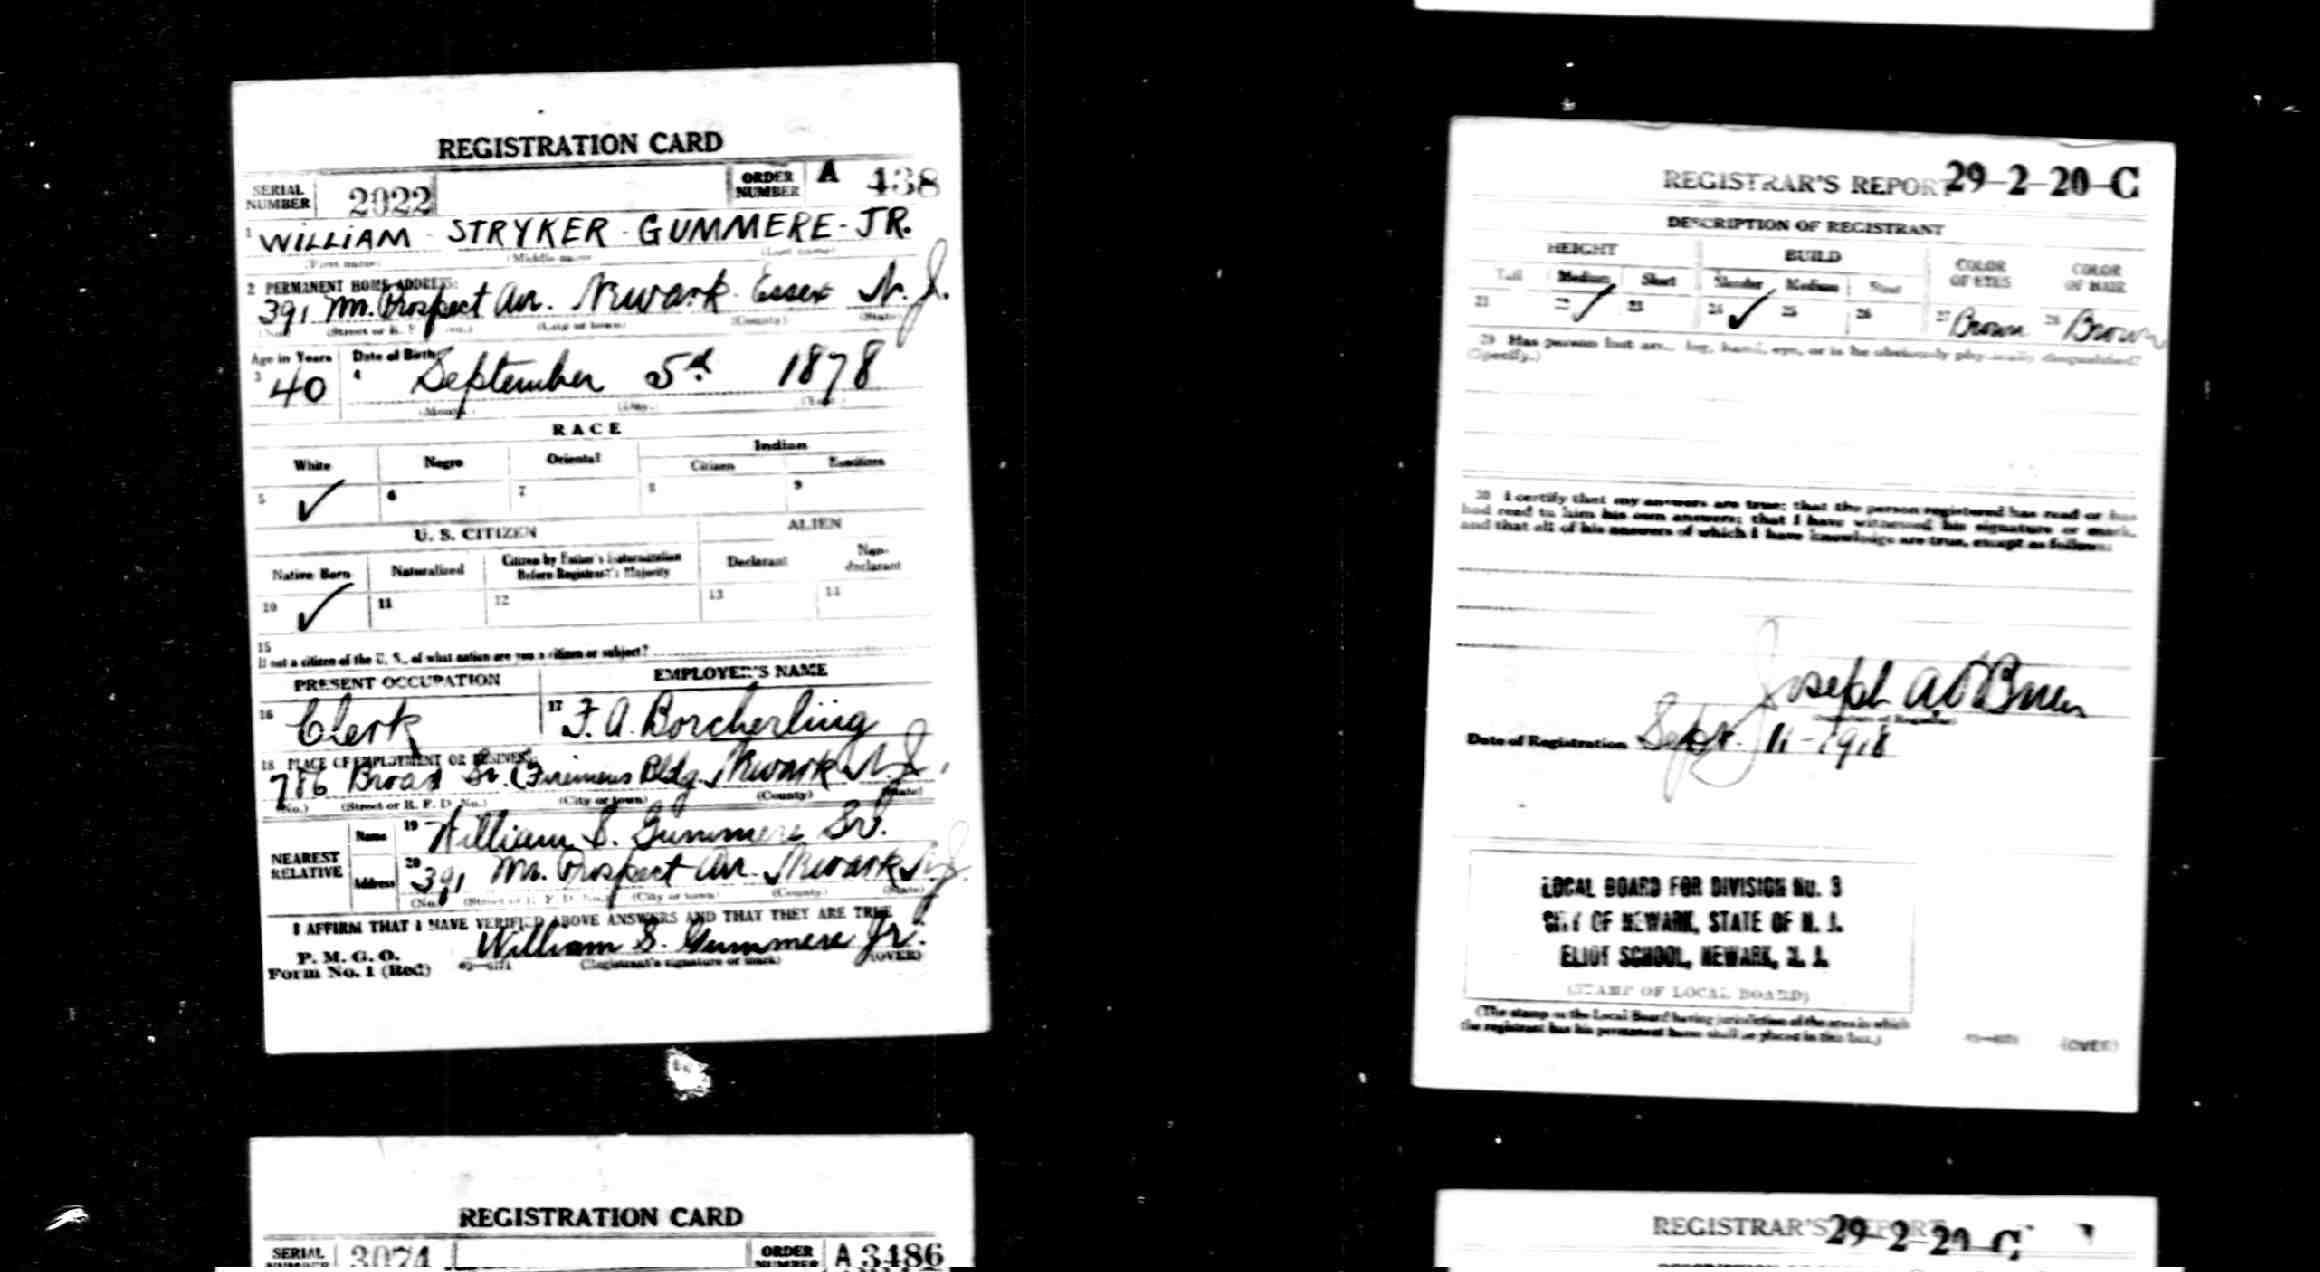 REGISTRATION CARD
SERIAL NUMBER 2022 ORDER NUMBER A 438
1 WILLIAM - STRYKER - GUMMERE - JR.
(First name) (Middle name) (Last name)
2 PERMANENT HOME ADDRESS:
391 Mt. Prospect Av. Newark Essex N. J.
(No.) (Street or R. F. D. No.) (City or town) (County) (State)
Age in Years Date of Birth
3 40 4 September 5th 1878
(Month.) (Day.) (Year.)
RACE
White Negro Oriental Indian
Citizen Noncitizen
5 ✓ 6 7 8 9
U. S. CITIZEN ALIEN
Native Born Naturalized Citizen by Father's Naturalization Before Registrant's Majority Declarant Non-declarant
10 ✓ 11 12 13 14
15
If not a citizen of the U. S., of what nation are you a citizen or subject?
PRESENT OCCUPATION EMPLOYER'S NAME
16 Clerk 17 F. A. Borcherling
18 PLACE OF EMPLOYMENT OR BUSINESS:
786 Broad St. (Firemens Bldg. Newark N. J.
(No.) (Street or R. F. D. No.) (City or town) (County) (State)
NEAREST RELATIVE
Name 19 William S. Gummere Sr.
Address 20 391 Mt. Prospect Av. Newark N. J.
(No.) (Street or R. F. D. No.) (City or town) (County) (State)
I AFFIRM THAT I HAVE VERIFIED ABOVE ANSWERS AND THAT THEY ARE TRUE
P. M. G. O.
Form No. 1 (Red) William S. Gummere Jr.
(Registrant's signature or mark) (OVER)
REGISTRATION CARD
SERIAL NUMBER 3074 ORDER NUMBER A 3486
REGISTRAR'S REPORT 29-2-20-C
DESCRIPTION OF REGISTRANT
HEIGHT BUILD COLOR OF EYES COLOR OF HAIR
Tall Medium Short Slender Medium Stout
21 22 ✓ 23 24 ✓ 25 26 27 Brown 28 Brown
29 Has person lost arm, leg, hand, eye, or is he obviously physically disqualified?
(Specify.)
30 I certify that my answers are true; that the person registered has read or has
had read to him his own answers; that I have witnessed his signature or mark,
and that all of his answers of which I have knowledge are true, except as follows:
Joseph A O'Brien
(Signature of Registrar)
Date of Registration Sept. 11-1918
LOCAL BOARD FOR DIVISION No. 3
CITY OF NEWARK, STATE OF N. J.
ELIOT SCHOOL, NEWARK, N. J.
(STAMP OF LOCAL BOARD)
(The stamp of the Local Board having jurisdiction of the area in which
the registrant has his permanent home shall be placed in this box.)
(OVER)
REGISTRAR'S REPORT 29-2-20-C